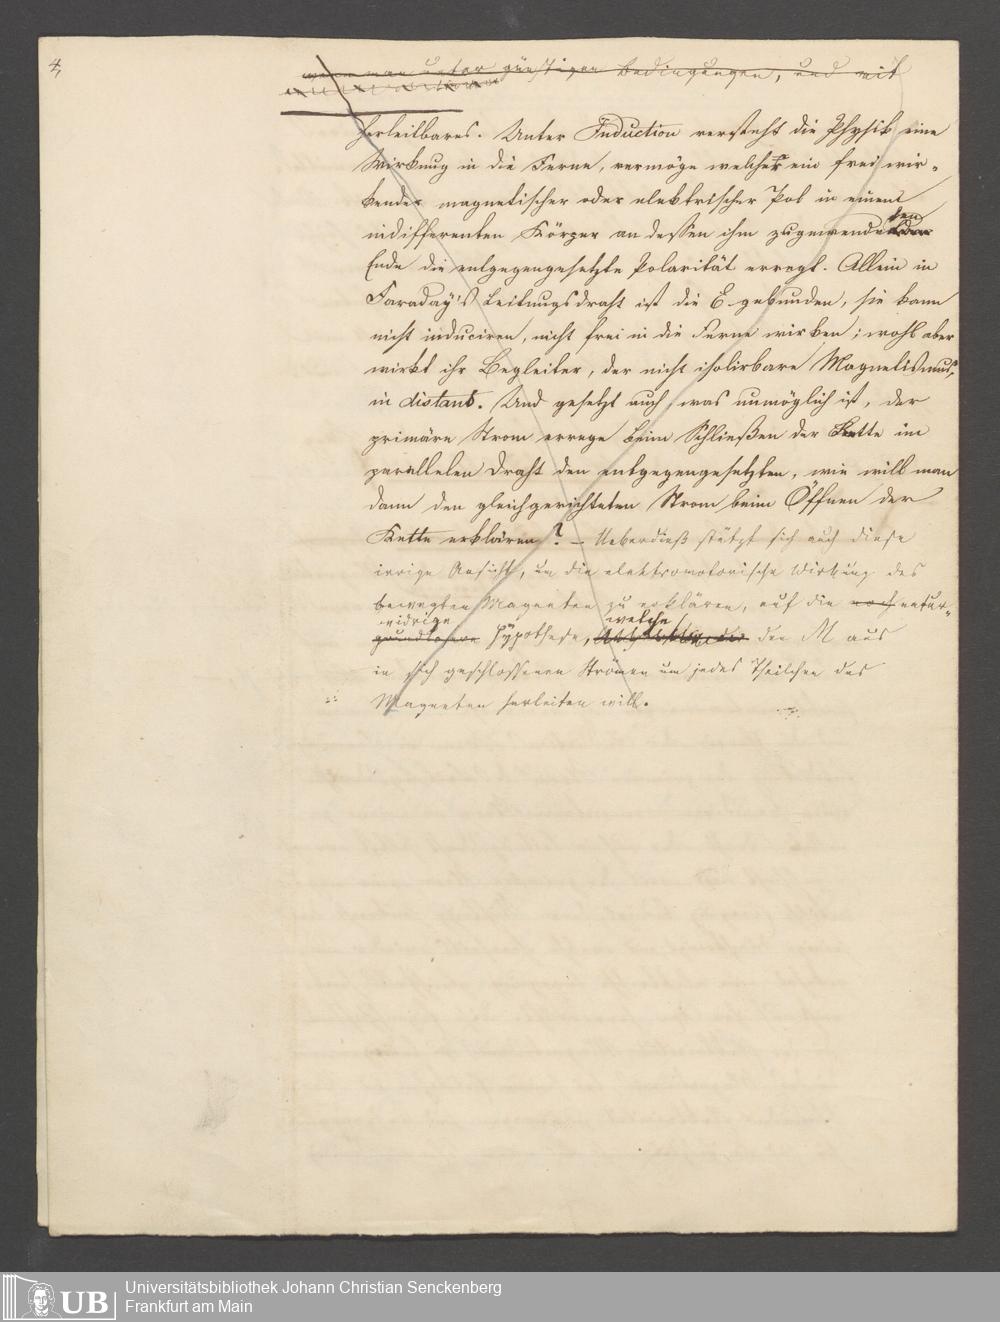 4,
wenn man unter günstigen Bedingungen, und mit
herleitbares. Unter Induction versteht die Physik eine
Wirkung in die Ferne, vermöge welcher ein frei wir-
kender magnetischer oder elektrischer Pol in einem
indifferenten Körper an dessen ihm zugewendeten
Ende die entgegengesetzte Polarität erregt. Allein in
Faraday's Leitungsdraht ist die E. gebunden, sie kann
nicht induciren, nicht frei in die Ferne wirken; wohl aber
wirkt ihr Begleiter, der nicht isolirbare Magnetismus,
in distans. Und gesetzt auch, was unmöglich ist, der
primäre Strom errege beim Schließen der Kette im
parallelen Draht den entgegengesetzten, wie will man
dann den gleichgerichteten Strom beim Öffnen der
Kette erklären? – Ueberdieß stützt sich auch diese
irrige Ansicht, um die elektromotorische Wirkung des
bewegten Magneten zu erklären, auf die noch natur-
widrige welche
grundlosere Hypothese, den M aus
in sich geschlossenen Strömen um jedes Theilchen des
Magneten herleiten will.
Universitätsbibliothek Johann Christian Senckenberg
Frankfurt am Main
UB